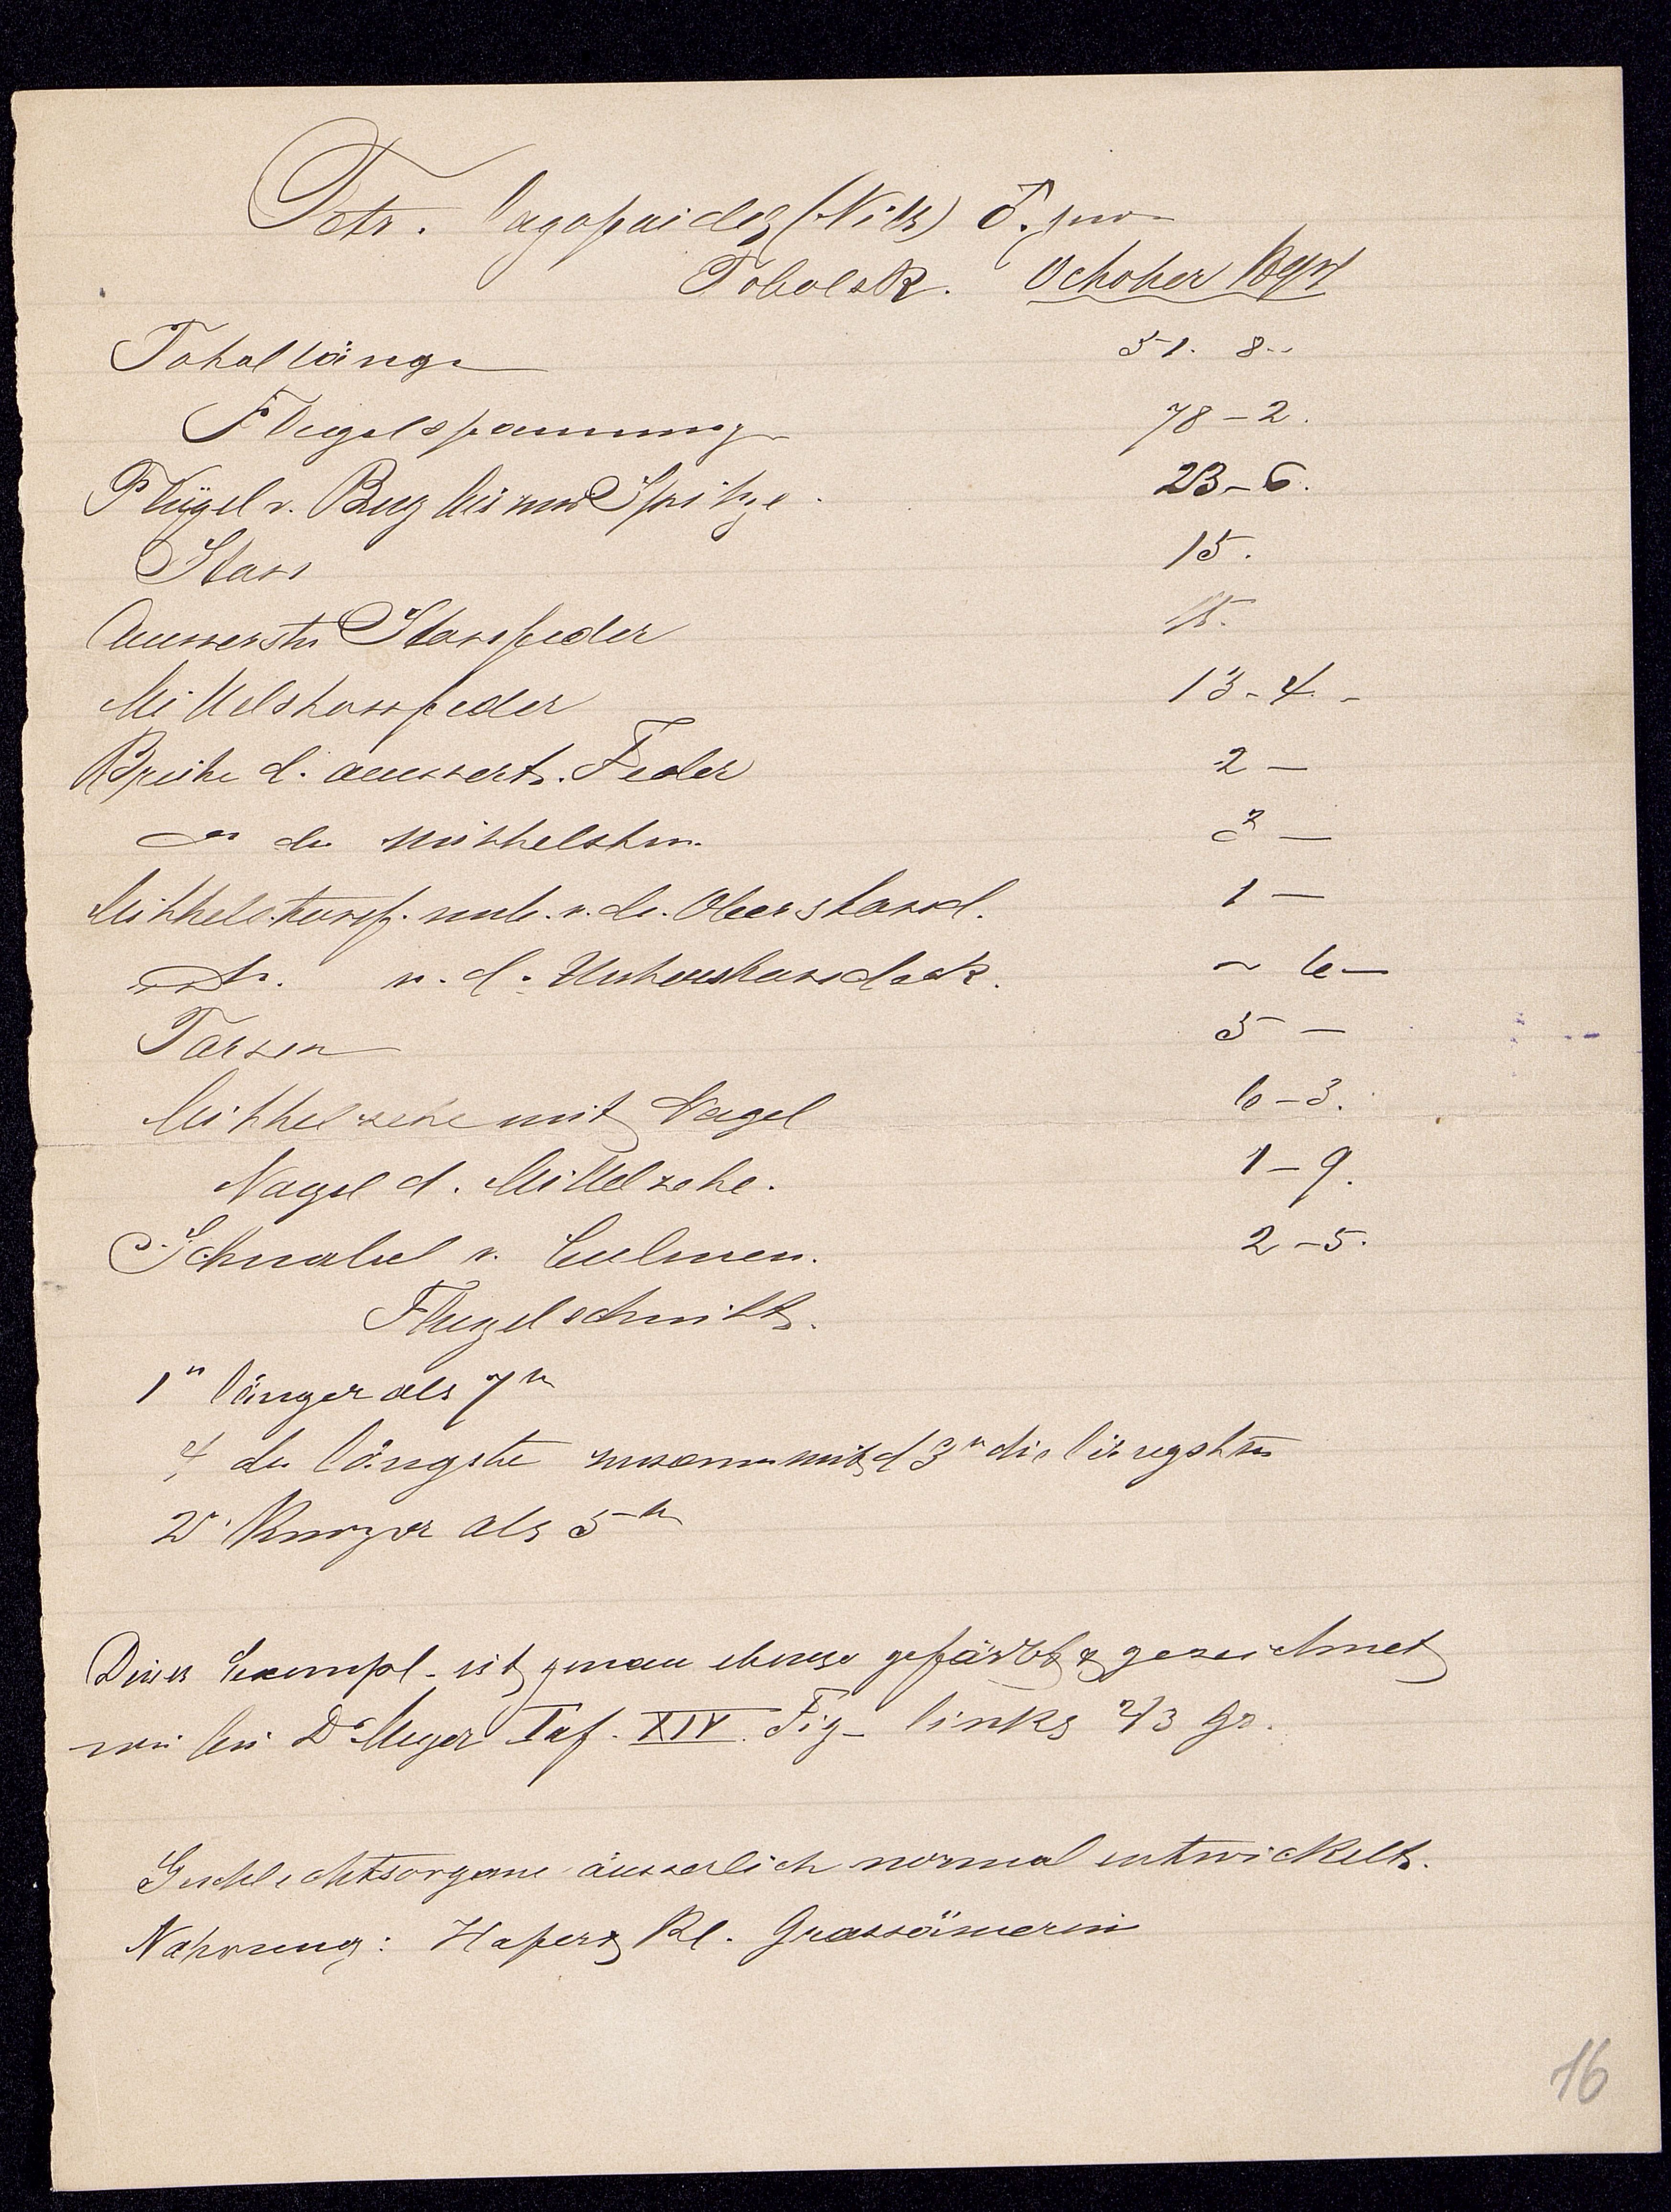 Tetr. lagopoides (Nils) ♂. juv.
Tobolsk. October 1891
Totallänge 51. 8..
Flügelspannung 78-2.
Flügel v. Bug bis zur Spitze. 23-6.
Stoss 15.
Äusserste Stossfeder 15.
Mittelstossfeder 13-4.-
Breite d. äusserst. Feder 2 —
do der Mittelsten 2 —
Mittelstossf. unt. v. de. Oberstossd. 1 —
v. d. Unterstossdeck. ~ 6 —
Tarsen 5 —
Mittelzehe mit Nagel 6-3.
Nagel d. Mittelzehe. 1-9.
Schnabel v. Culmen. 2-5.
Flügelschnitt.
1" länger als 7"
4 die längste zusamm mit d 3" die längsten
2" Kürzer als 5"
Dieses Exempl. ist genau ebenso gefärbt & gezeichnet
wie bei Dr Meyer Taf. XIV. Fig- links 2/3 Gr.
Geschlechtsorgane äusserlich normal entwickelt.
Nahrung: Hafer & Kl. Grassämerein
16